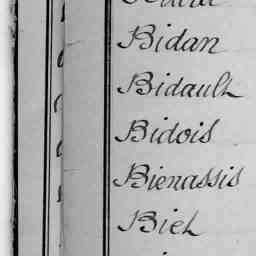 Bidan
Bidault
Bidois
Bienassis
Bieh